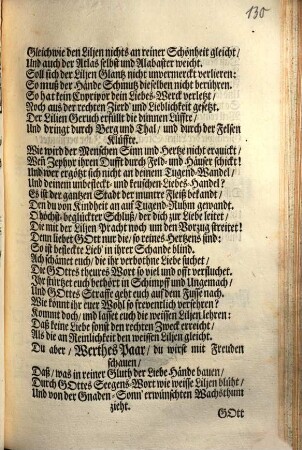 130
Gleichwie den Liljen nichts an reiner Schönheit gleicht/
Und auch der Atlas selbst und Alabaster weicht.
Soll sich der Liljen Glantz nicht unvermerckt verlieren:
So muß der Hände Schmutz dieselben nicht berühren.
So hat kein Cypripor dein Liebes-Werck verletz/
Noch aus der rechten Zierd' und Lieblichkeit gesetzt.
Der Lilien Geruch erfüllt die dünnen Lüffte/
Und dringt durch Berg und Thal/ und durch der Felsen
Klüffte.
Wie wird der Menschen Sinn und Hertze nicht erquickt/
Weñ Zephyr ihren Dufft durch Feld- und Häuser schickt!
Und wer ergötzt sich nicht an deinem Tugend-Wandel/
Und deinem unbefleckt- und keuschen Liebes-Handel?
Es ist der gantzen Stadt der muntre Fleiß bekandt/
Den du von Kindheit an auf Tugend-Ruhm gewandt.
O höchst-beglückter Schluß/ der dich zur Liebe leitet/
Die mit der Liljen Pracht noch um den Vorzug streitet!
Denn liebet GOtt nur die/ so reines Hertzens sind:
So ist befleckte Lieb' in ihrer Schande blind.
Ach schämet euch/ die ihr verbothne Liebe suchet/
Die GOttes theures Wort so viel und offt verfluchet.
Ihr stürtzet euch bethört in Schimpff und Ungemach/
Und GOttes Straffe geht euch auf dem Fusse nach.
Wie könnt ihr euer Wohl so freventlich verscheren?
Kommt doch/ und lasset euch die weissen Liljen lehren:
Daß keine Liebe sonst den rechten Zweck erreicht/
Als die an Reinlichkeit den weissen Liljen gleicht.
Du aber/ Werthes Paar/ du wirst mit Freuden
schauen/
Daß/ was in reiner Gluth der Liebe Hände bauen/
Durch GOttes Seegens-Wort wie weisse Liljen blüht/
Und von der Gnaden-Sonn' erwünschten Wachsthum
zieht.
GOtt